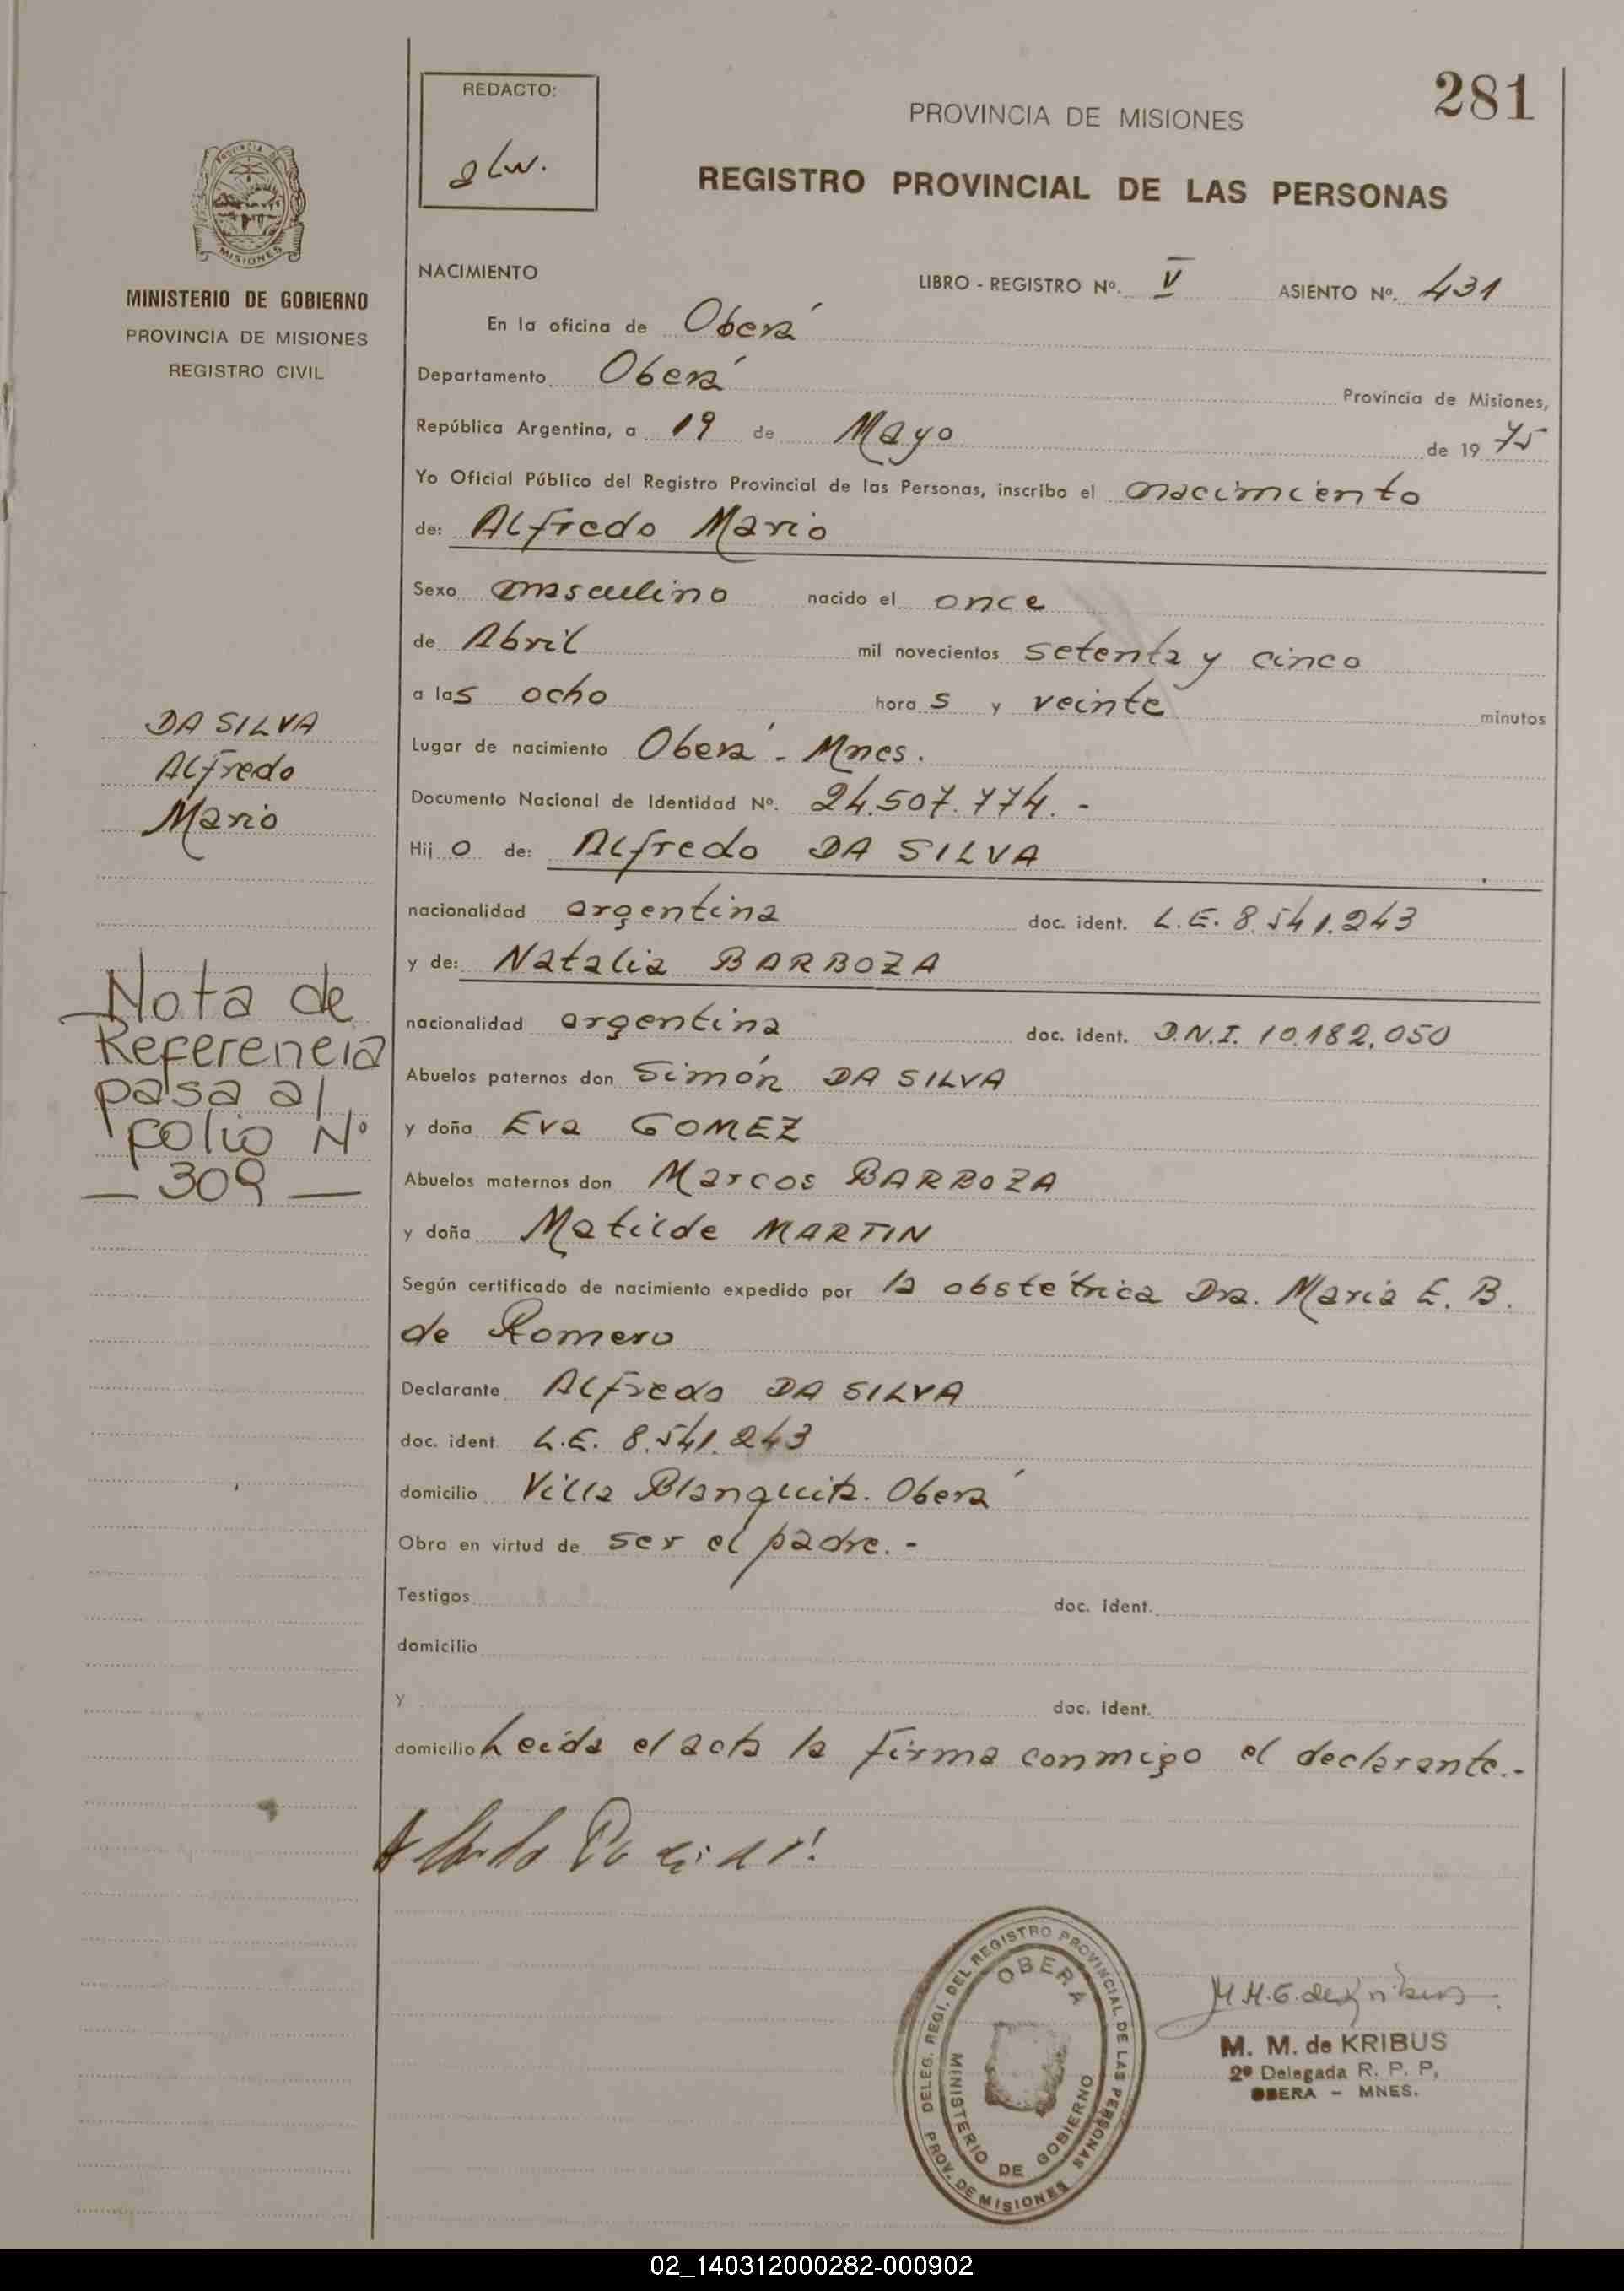 281
REDACTO:
PROVINCIA DE MISIONES
REGISTRO PROVINCIAL DE LAS PERSONAS
PROVINCIA DE
MISIONES
MINISTERIO DE GOBIERNO
PROVINCIA DE MISIONES
REGISTRO CIVIL
NACIMIENTO LIBRO - REGISTRO Nº. V ASIENTO Nº. 431
En la oficina de Oberá
Departamento Oberá Provincia de Misiones,
República Argentina, a 19 de Mayo de 1975
Yo Oficial Público del Registro Provincial de las Personas, inscribo el nacimiento
de: Alfredo Mario
Sexo masculino nacido el once
de Abril mil novecientos setenta y cinco
a las ocho horas y veinte minutos
Lugar de nacimiento Oberá - Mnes.
Documento Nacional de Identidad Nº. 24.507.774.-
Hijo de: Alfredo DA SILVA
nacionalidad argentina doc. ident. L.E. 8.541.243
y de: Natalia BARBOZA
nacionalidad argentina doc. ident. D.N.I. 10.182.050
Abuelos paternos don Simón DA SILVA
y doña Eva GOMEZ
Abuelos maternos don Marcos BARBOZA
y doña Matilde MARTIN
Según certificado de nacimiento expedido por la obstétrica Dra. Maria E. B.
de Romero
Declarante Alfredo DA SILVA
doc. ident. L.E. 8.541.243
domicilio Villa Blanquita. Oberá
Obra en virtud de ser el padre.-
Testigos doc. ident.
domicilio
y doc. ident.
domicilio Leida el acta la firma conmigo el declarante.-
DA SILVA
Alfredo
Mario
Nota de
Referencia
pasa al
folio Nº
— 309 —
DELEG. REGI. DEL REGISTRO PROVINCIAL DE LAS PERSONAS
PROV. DE MISIONES
OBERA
MINISTERIO DE GOBIERNO
M. M. de KRIBUS
2ª Delegada R. P. P.
OBERA - MNES.
02_140312000282-000902